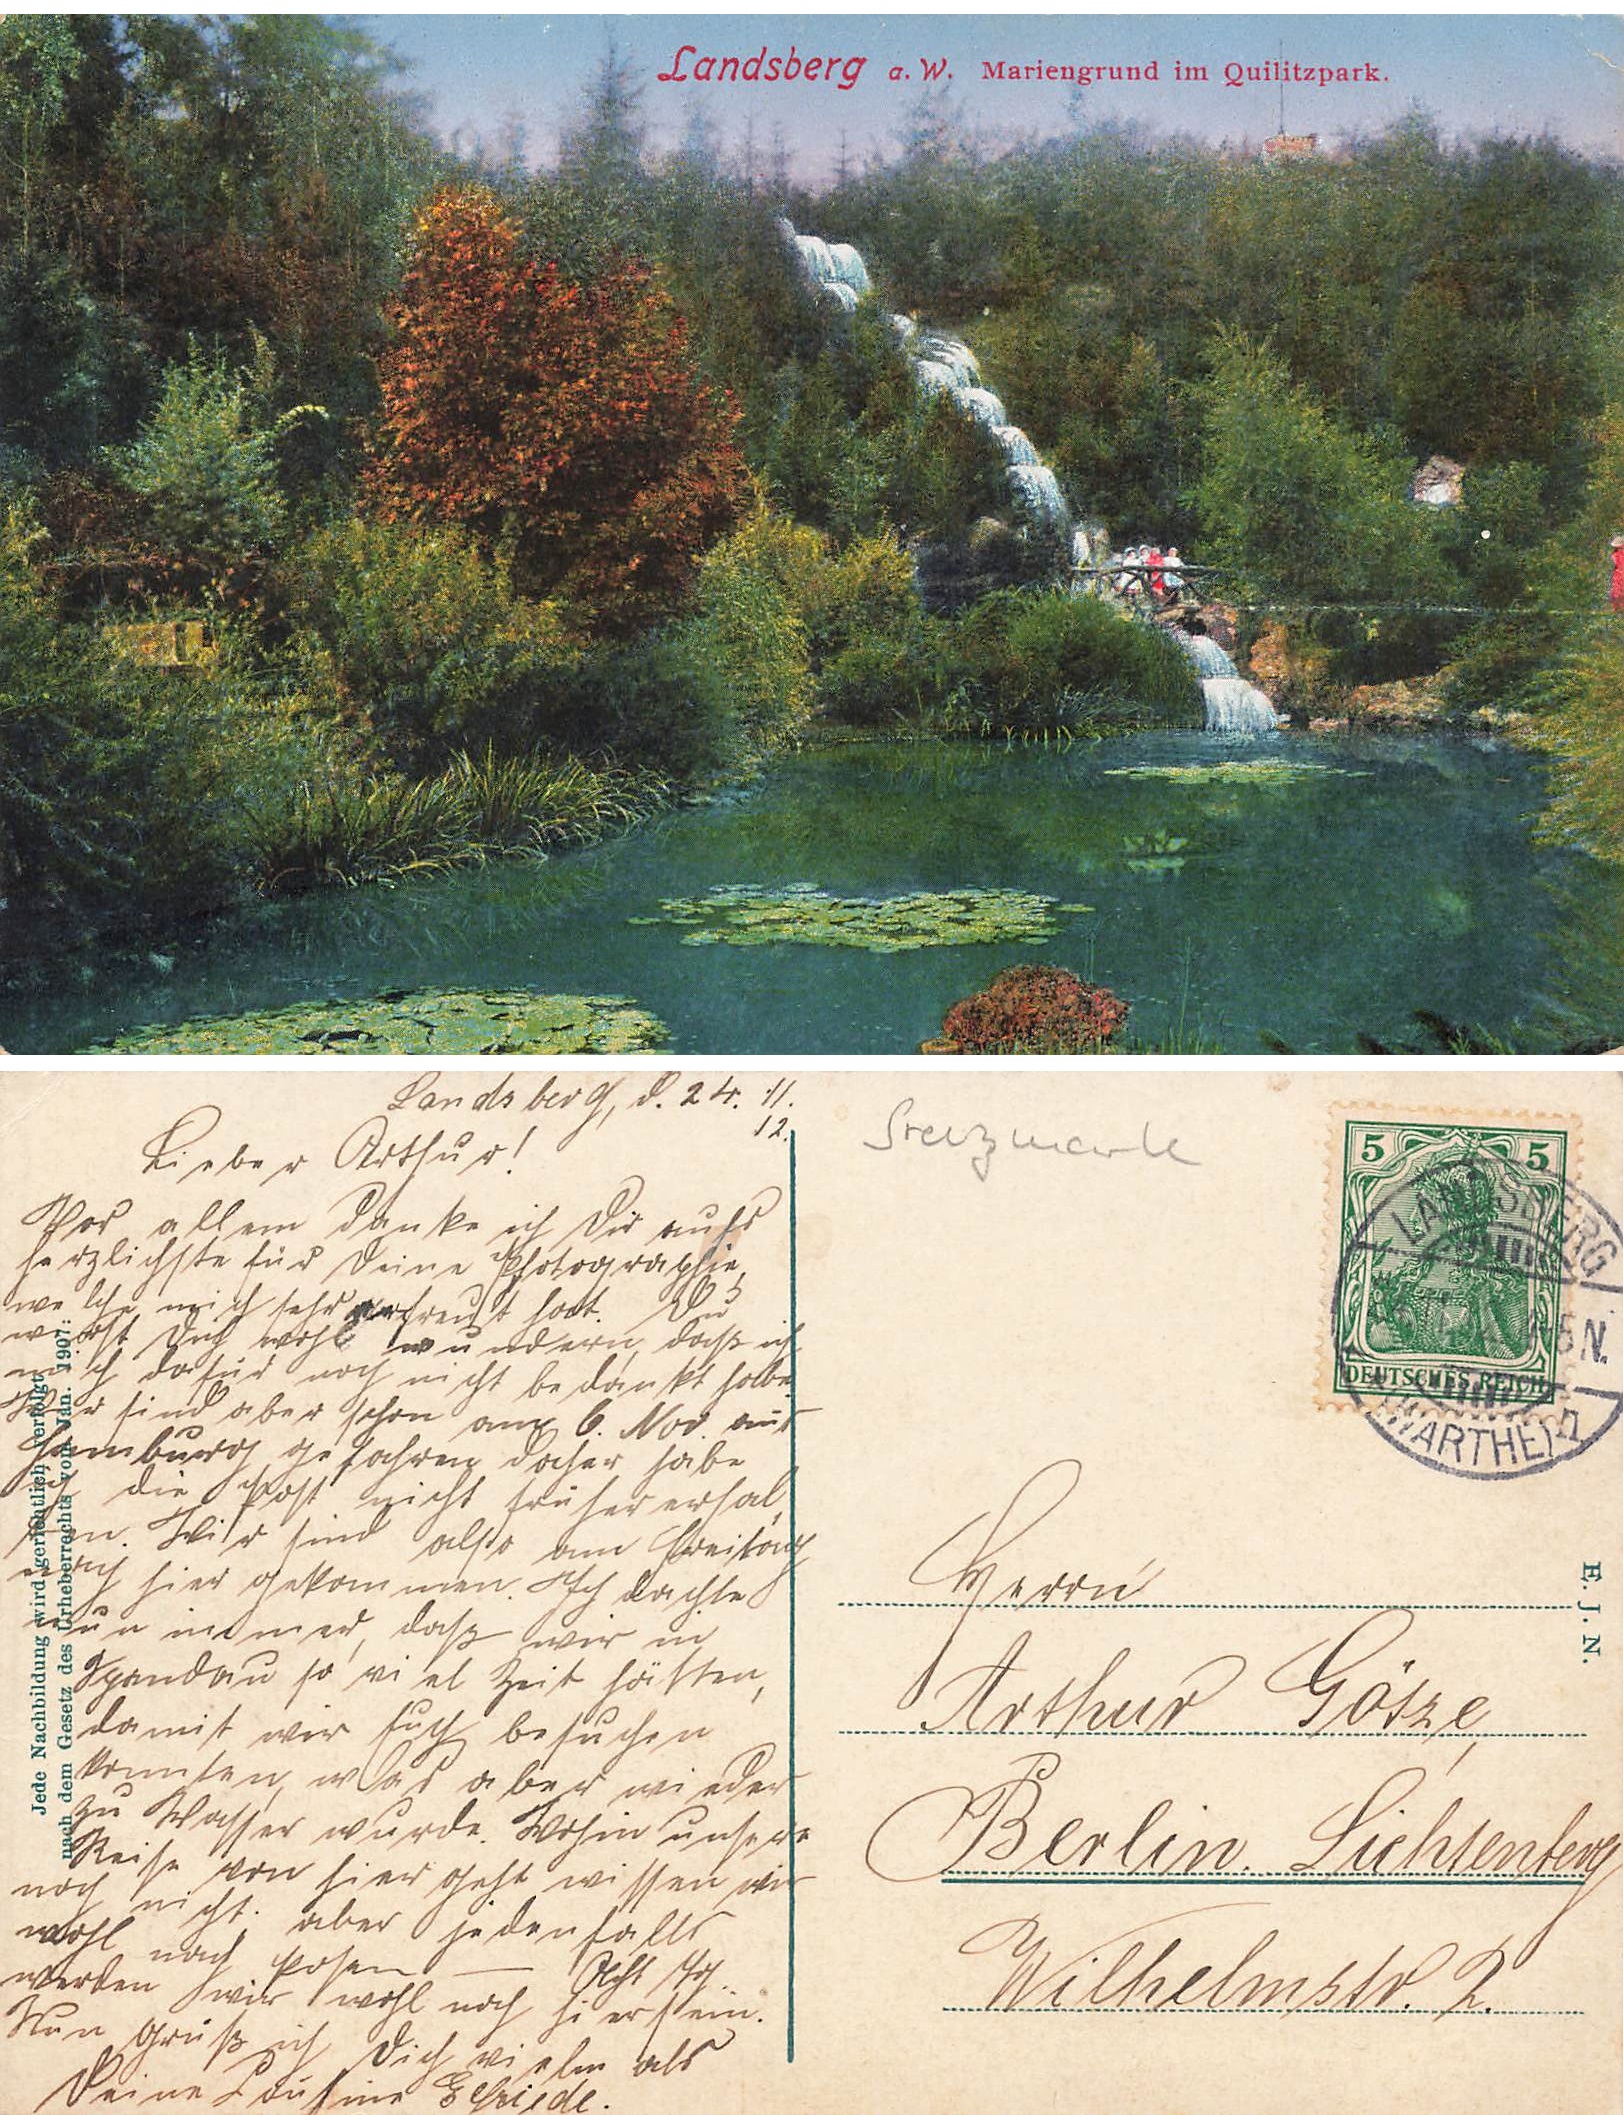 Landsberg a. W. Mariengrund im Quilitzpark.
Landsberg, d. 24. 11.
12.
Lieber Arthur!
Vor allem danke ich Dir aufs
herzlichste für Deine Photographie,
welche mich sehr erfreut hat. Du
wirst Dich wohl wundern, daß ich
mich dafür noch nicht bedankt habe.
Wir sind aber schon am 6. Nov. aus
Hamburg gefahren daher habe
ich die Post nicht früher erhal
ten. Wir sind also am Freitag
nach hier gekommen. Ich dachte
nun immer, daß wir in
Spandau so viel Zeit hätten,
damit wir Euch besuchen
konnten, was aber wieder
zu Wasser wurde. Wohin unsere
Reise von hier geht wissen wir
noch nicht. aber jedenfalls
wohl nach Posen — Acht Tg.
werden wir wohl noch hier sein.
Nun Gruß ich Dich vielmals
Deine Cousine Elfriede.
Jede Nachbildung wird gerichtlich verfolgt
nach dem Gesetz des Urheberrechts vom Jan. 1907:
5 5
DEUTSCHES REICH
LANDSBERG
5 N.
(WARTHE)
E. J. N.
Herrn
Arthur Götze,
Berlin. Lichtenberg
Wilhelmstr. 2.